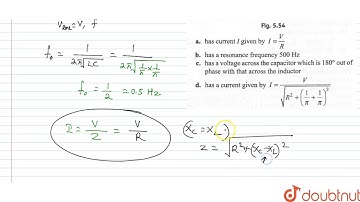 V_RMS = V, f
f₀ = 1/(2π√LC) = 1/(2π√(1/π × 1/π))
f₀ = 1/2 = 0.5 Hz
I = V/Z = V/R
(X_C = X_L)
Z = √(R² + (X_C - X_L)²)
Fig. 5.54
a. has current I given by I = V/R
b. has a resonance frequency 500 Hz
c. has a voltage across the capacitor which is 180° out of
phase with that across the inductor
d. has a current given by I = V/√(R² + (1/π + 1/π)²)
doubtnut